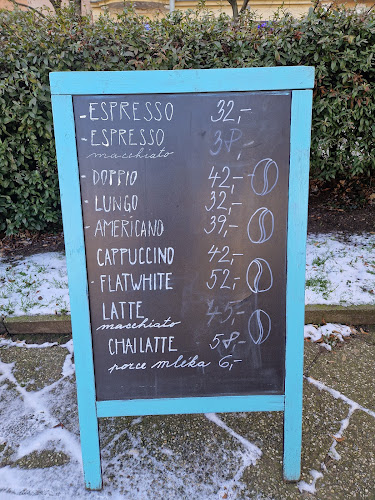 - ESPRESSO 32,-
- ESPRESSO 38,-
macchiato
- DOPPIO 42,-
- LUNGO 32,-
- AMERICANO 39,-
CAPPUCCINO 42,-
- FLATWHITE 52,-
LATTE 45,-
macchiato
CHAI LATTE 58,-
porce mléka 6,-